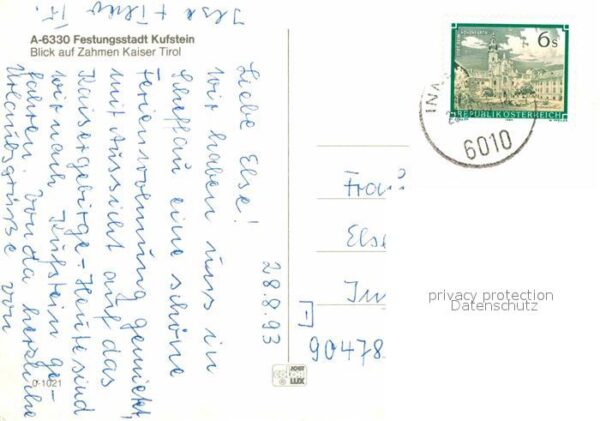 A-6330 Festungsstadt Kufstein
Blick auf Zahmen Kaiser Tirol
28.8.93
Liebe Else!
Wir haben uns in
Scheffau eine schöne
Ferienwohnung gemietet,
mit Aussicht auf das
Kaisergebirge - Heute sind
wir nach Kufstein ge-
fahren. Von da herzliche
Urlaubsgrüße von
Ilse +
6 S
REPUBLIK ÖSTERREICH
6010
Frau
Else
90478
privacy protection
Datenschutz
D-1021
LUX